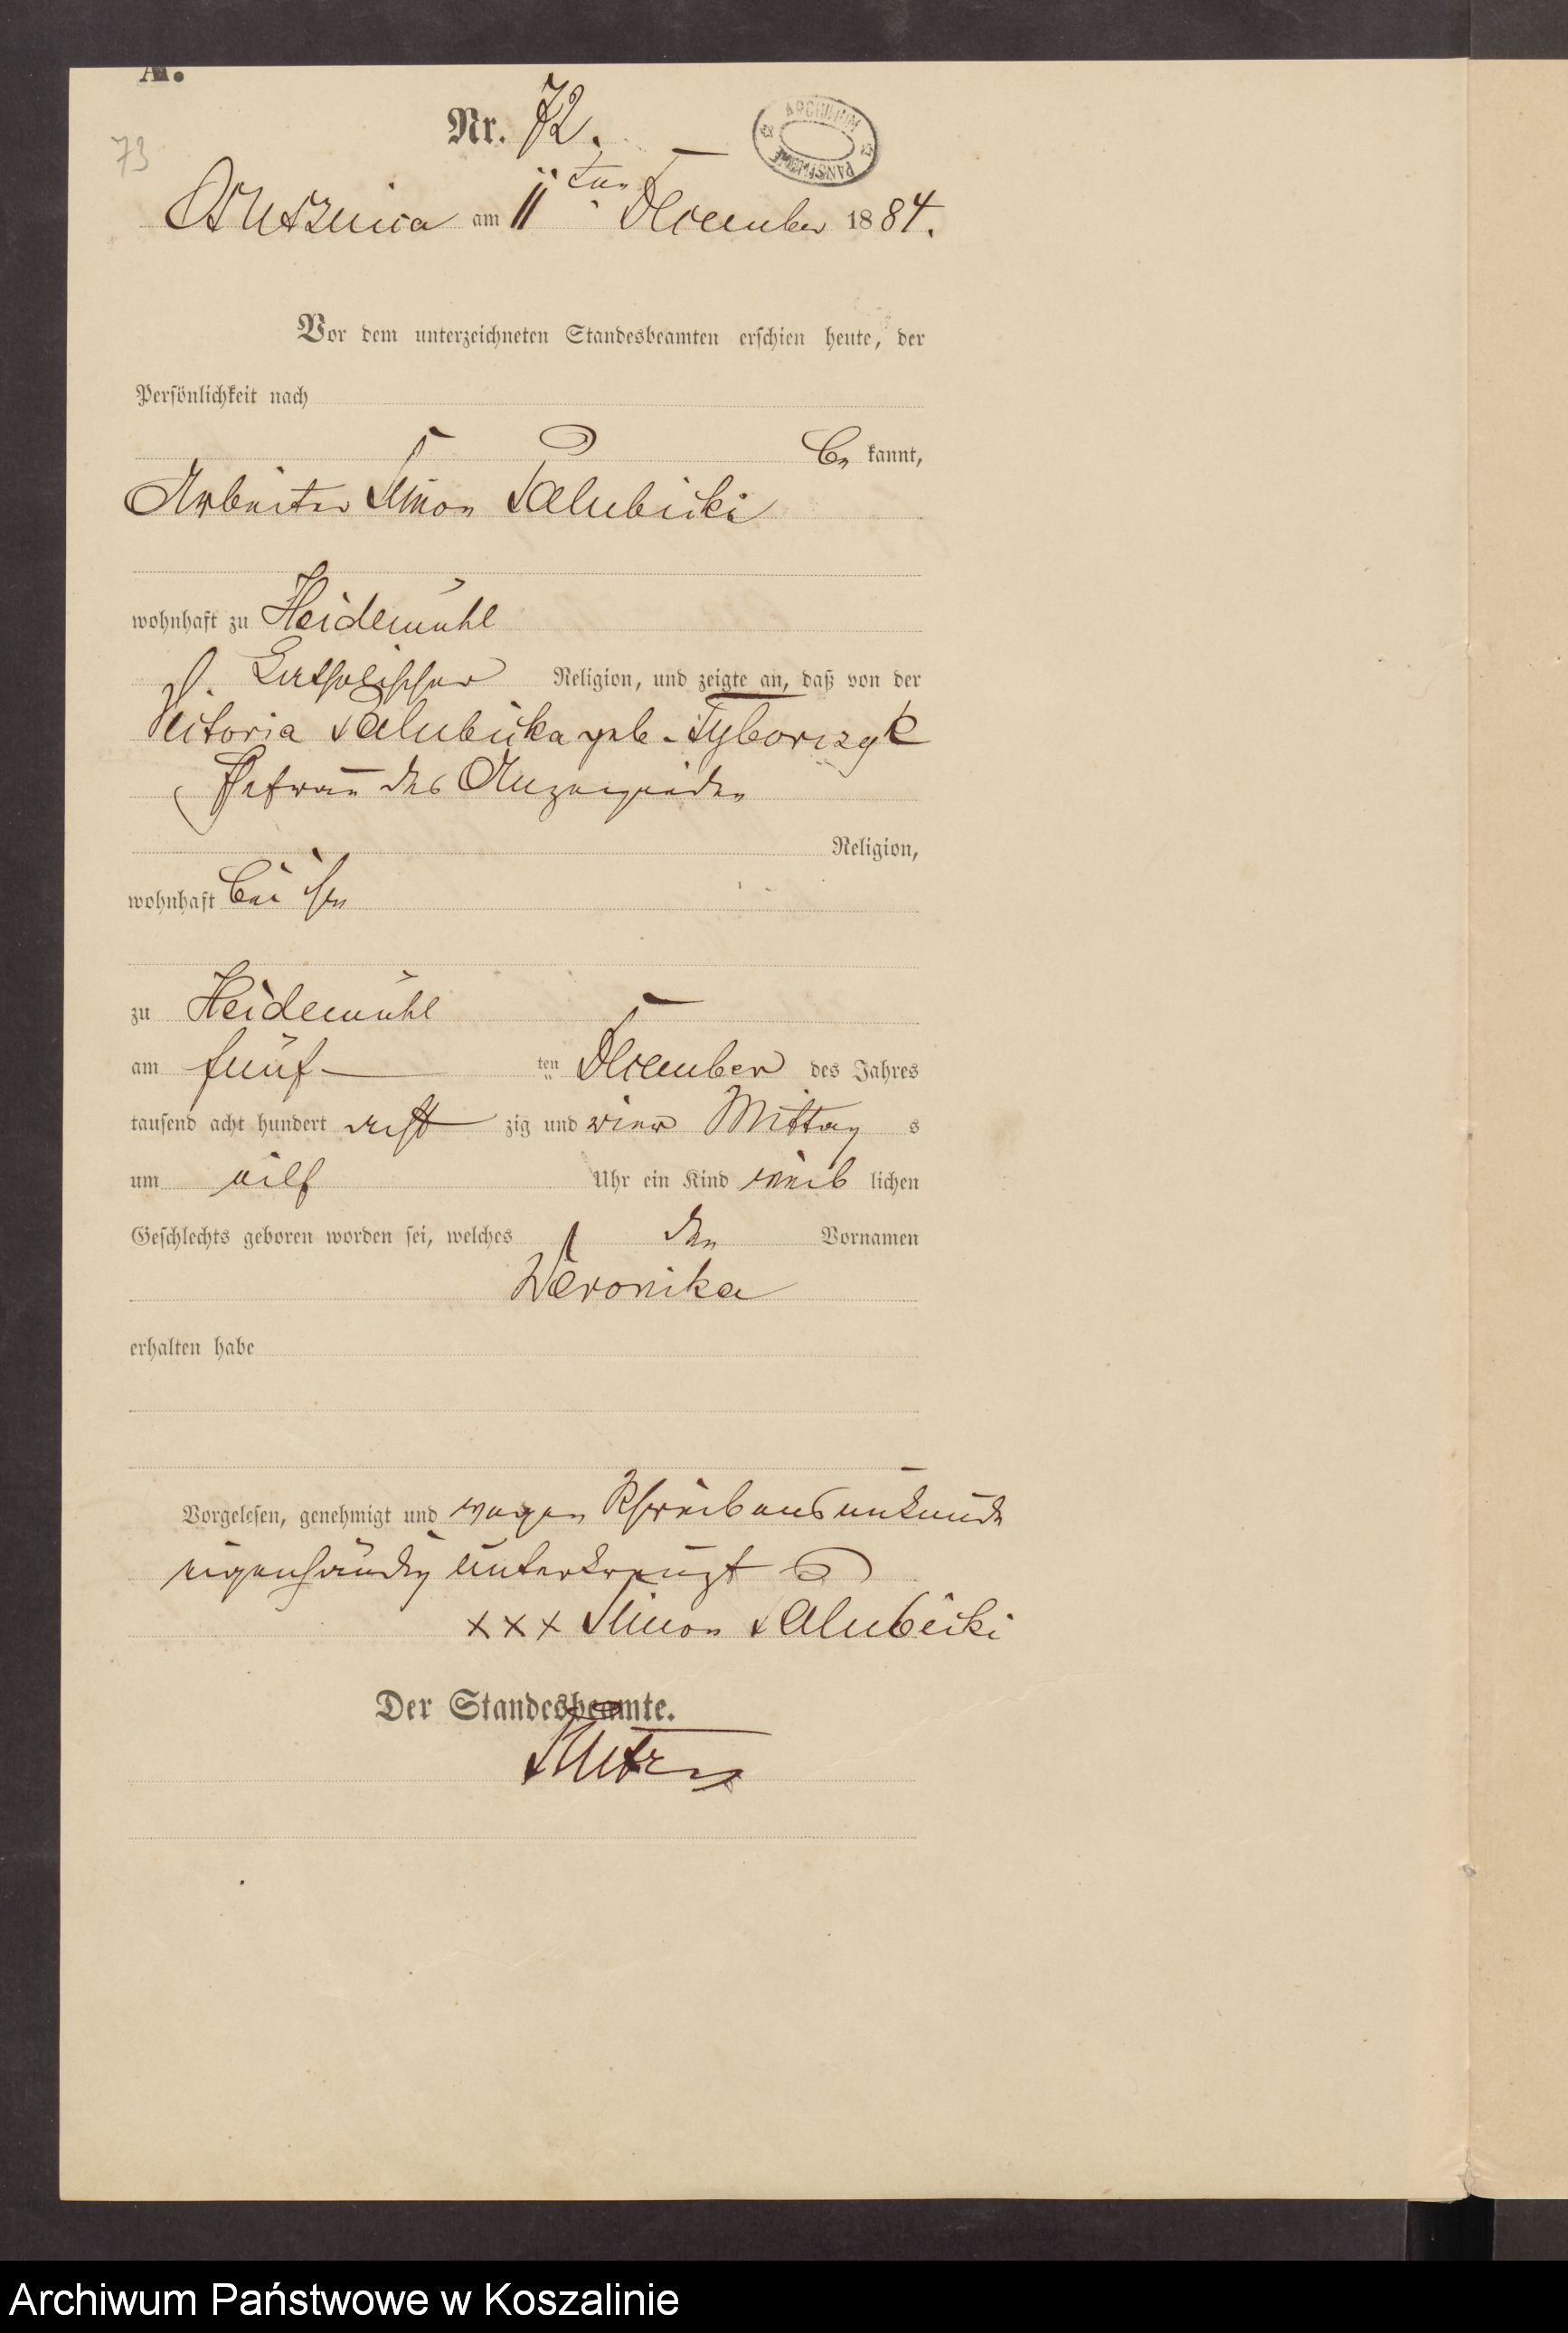 A.
Nr. 72.
ARCHIWUM PAŃSTWOWE
73
Ossusznica am 11ten December 1884.
Vor dem unterzeichneten Standesbeamten erschien heute, der
Persönlichkeit nach
be kannt,
Arbeiter Simon Palubicki
wohnhaft zu Heidemühl
katholischer Religion, und zeigte an, daß von der
Victoria Palubicka geb. Tyborczyk
Ehefrau des Anzeigenden
Religion,
wohnhaft bei ihm
zu Heidemühl
am fünf ten December des Jahres
tausend acht hundert acht zig und vier Mittag s
um eilf Uhr ein Kind weib lichen
Geschlechts geboren worden sei, welches den Vornamen
Weronika
erhalten habe
Vorgelesen, genehmigt und wegen Schreibensunkunde
eigenhändig unterkreuzt
xxx Simon Palubicki
Der Standesbeamte.
Archiwum Państwowe w Koszalinie